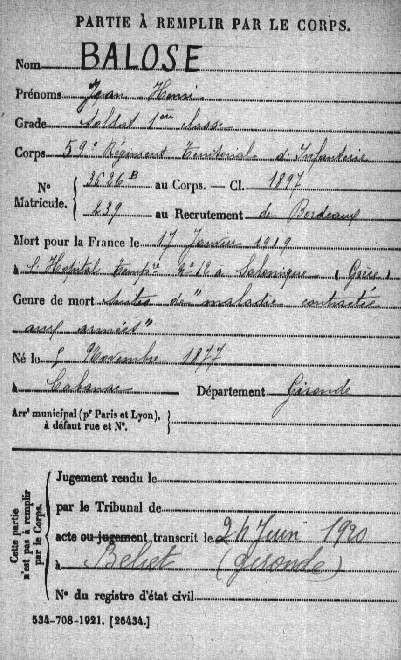 PARTIE À REMPLIR PAR LE CORPS.
Nom BALOSE
Prénoms Jean Henri
Grade Soldat 1ère classe
Corps 59e Régiment Territorial d'Infanterie
N° Matricule. 2526B au Corps. — Cl. 1897
239 au Recrutement de Bordeaux
Mort pour la France le 17 Janvier 1919
à l'Hopital Tempre N° 12 à Salonique (Grèce)
Genre de mort Suites de "maladie contractée
aux armées"
Né le Novembre 1877
à Cabanac Département Gironde
Arrt municipal (pr Paris et Lyon), à défaut rue et N°.
Cette partie n'est pas à remplir par le Corps.
Jugement rendu le
par le Tribunal de
acte ou jugement transcrit le 24 Juin 1920
à Belin (Gironde)
N° du registre d'état civil
534-708-1921. [26434.]